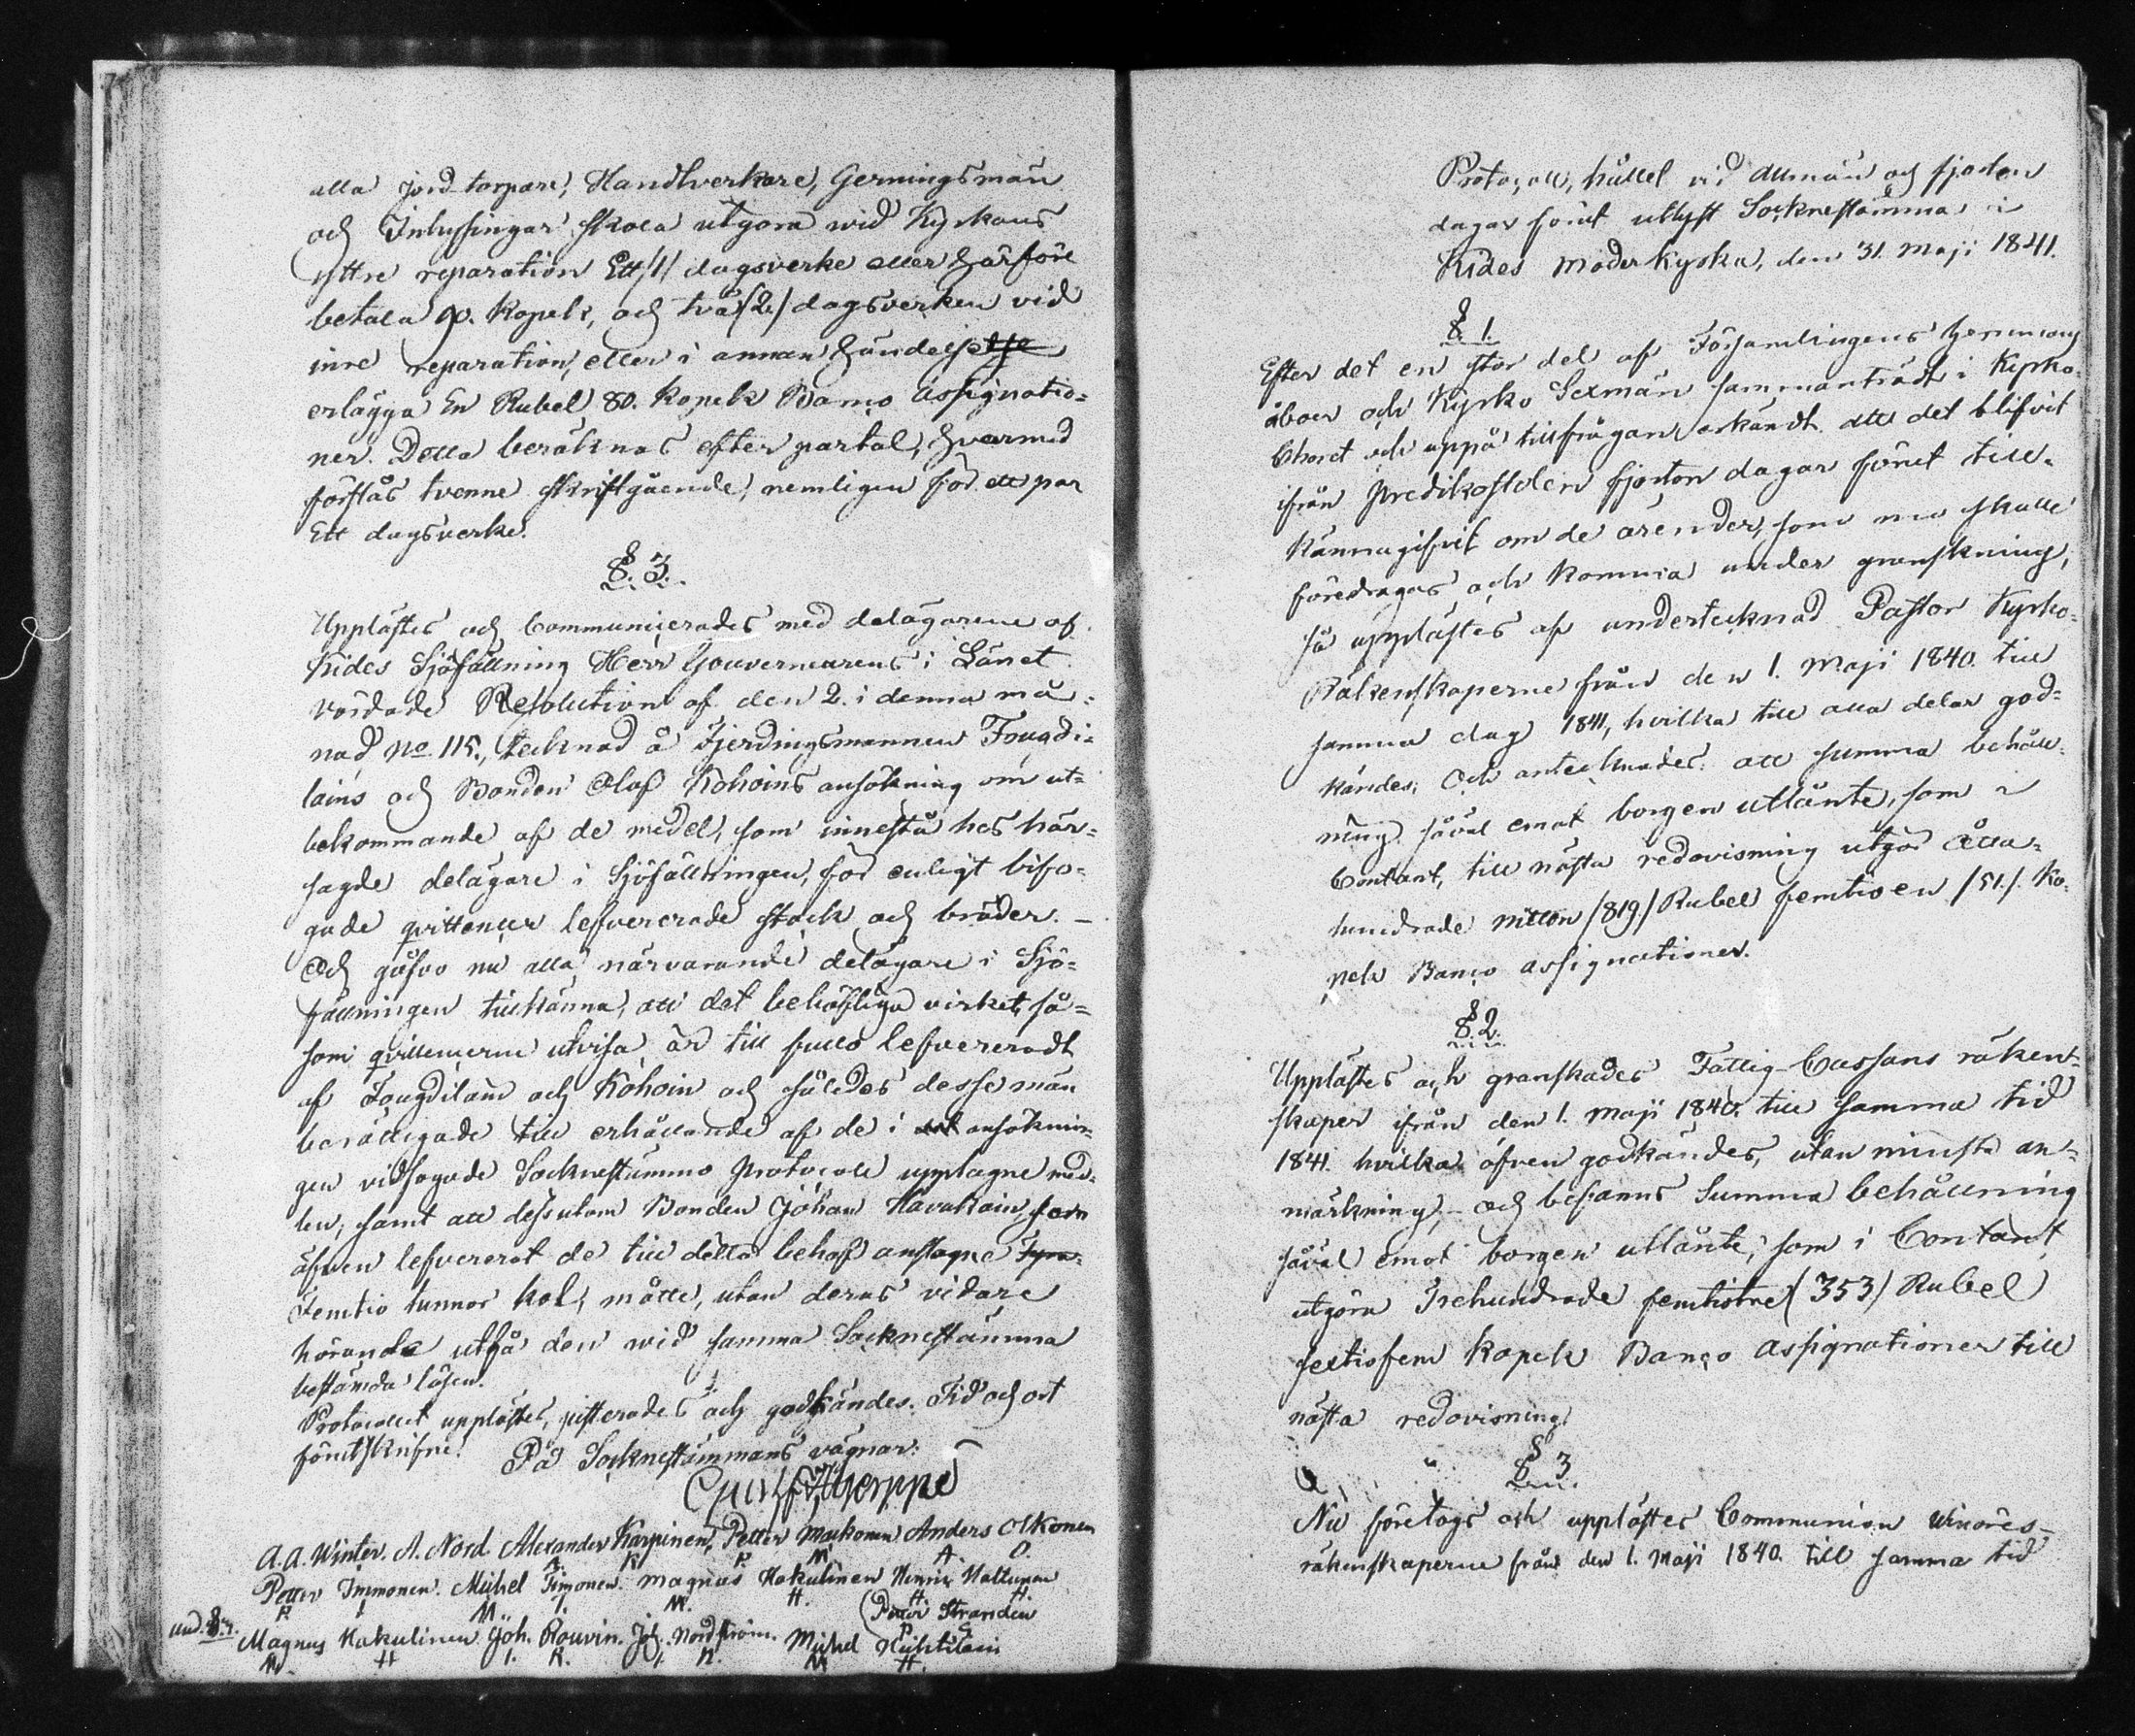 alla jord torpare, Handtverkare, Gerningsmän
och Inhysingar skola utgöra wid Kyrkans
yttre reparation Ett /1/ dagsverke eller härföre
betala 90. kopek, och två /2./ dagsverken vid
inre reparation, eller i annan händelse
erlägga En Rubel 80. kopek Banco Assignatio=
ner. Detta beräknas efter partal, hvarmed
förstås tvenne skriftgående, nemligen för ett par
Ett dagsverke.
§. 3.
Upplästes och Communicerades med delägarene af
Kides Sjöfällning Herr Gouverneurens i Länet
vördade Resolution af den 2. i denna må=
nad No 115., tecknad å Fjerdingsmannen Fougdi=
lains och Bonden Olof Kohoins ansökning om ut=
bekommande af de medel, som innestå hos här=
sagde delägare i Sjöfällningen, för enligt bifo=
gade qvittencer lefvererade stock och bräder. –
Och gåfvo nu alla närvarande delägare i Sjö=
fällningen tillkänna, att det behöfliga virket, så=
som qvittencerne utvisa, är till fullo lefvereradt
af Fougdilain och Kohoin och således desse män
berättigade till erhållande af de i ansöknin=
gen vidfogade Sockenstämmo Protocoll upptagne med=
len; samt att dessutom Bonden Johan Havukain, som
äfven lefvererat de till detta behof anslagne
Femtio tunnor kol, måtte, utan deras vidare
hörande utfå den wid samma Sockenstämma
bestämda lösen.
Protocollet upplästes, justerades och godkändes. Tid och ort
förutskrifne. På Sockenstämmans vägnar:
A. A. Winter. A. Nord. Alexander Karpinen, Petter Maukonen Anders Olkonen
A. K. P. M. A. O.
Petter Immonen. Michel Simonen. Magnus Hakulinen Henric Hattunen
P. I. M. S. M. H. H. H.
Petter Stranden
P. S.
Magnus Hakulinen Joh. Rouvin. Joh. Nordström. Michel Huhtilain
M. H. J. R. J. N. M. H.
Protocoll, hållet vid allmän och fjorton
dagar förut utlyst Sockenstämma i
Kides moderkyrka, den 31. Maji 1841.
§ 1.
Efter det en stor del af Församlingens hemmans
åboer och Kyrko Sexmän sammanträdt i Kyrko=
Choret och uppå tillfrågan erkändt att det blifvit
ifrån Predikostolen fjorton dagar förut till=
kännagifvit om de ärender, som nu skulle
föredragas och komma under granskning,
så upplästes af undertecknad Pastor Kyrko=
Räkenskaperne från den 1. Maji 1840. till
samma dag 1841, hvilka till alla delar god=
kändes; Och antecknades: att summa behåll=
ning såväl emot borgen utlånte, som i
Contant, till nästa redovisning utgör Åtta=
hundrade nitton /819./ Rubel femtioen /51./ Ko=
pek Banco assignationer.
§. 2.
Upplästes och granskades Fattig-Cassans räken=
skaper ifrån den 1. Maji 1840. till samma tid
1841. hvilka äfven godkändes, utan minsta an=
märkning, – och befanns Summa behållning
såväl emot borgen utlånte, som i Contant,
utgöra Trehundrade femtiotre (353) Rubel
sextiofem kopek Banco assignationer till
nästa redovisning.
§ 3.
Nu företogs och upplästes Communion winöres=
räkenskaperne från den 1. Maji 1840. till samma tid